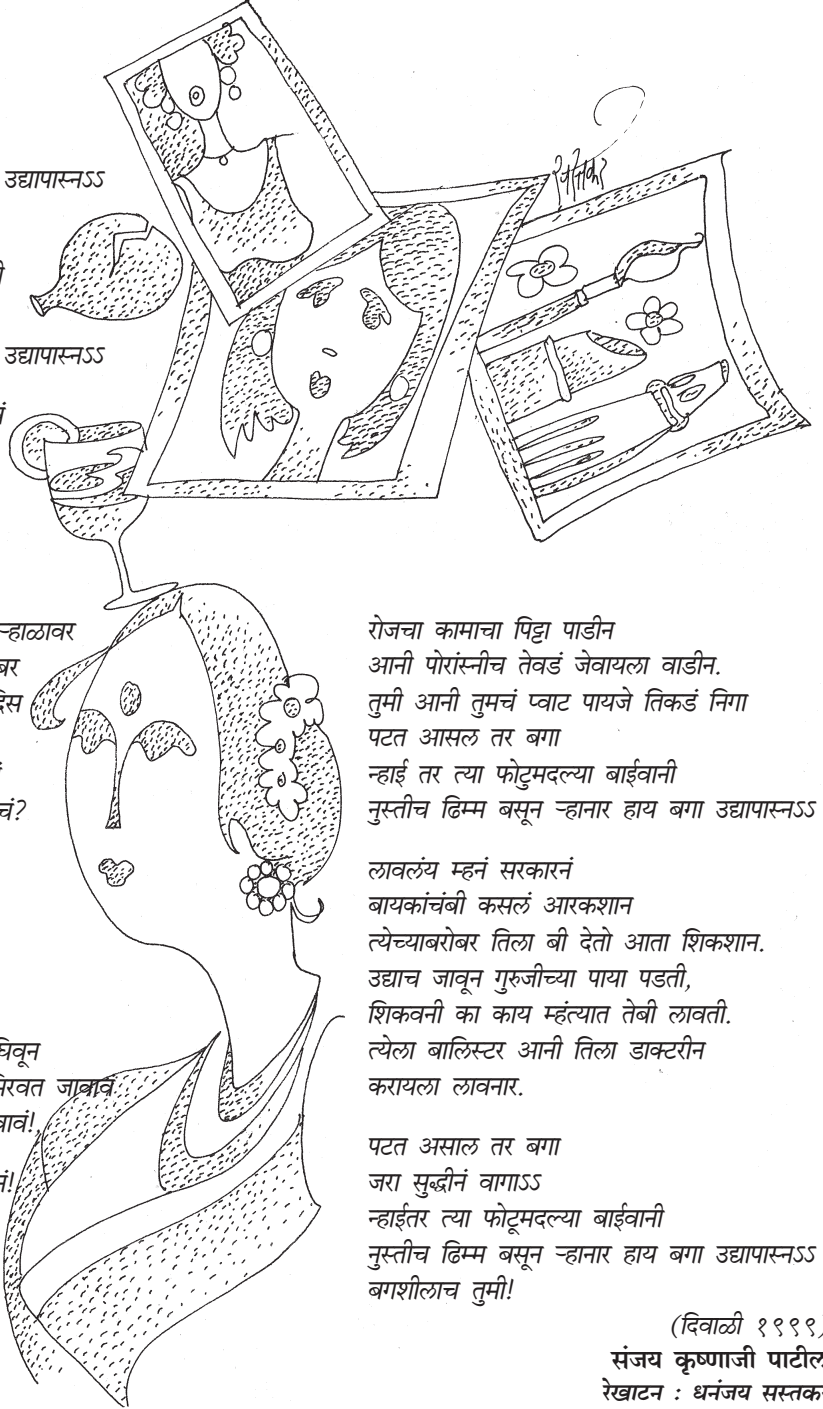 उद्यापास्नऽऽ
उद्यापास्नऽऽ
ऱ्हाळावर
रोजचा कामाचा पिट्टा पाडीन
आनी पोरांस्नीच तेवडं जेवायला वाडीन.
तुमी आनी तुमचं प्वाट पायजे तिकडं निगा
पटत आसल तर बगा
न्हाई तर त्या फोटुमदल्या बाईवानी
नुस्तीच ढिम्म बसून ऱ्हानार हाय बगा उद्यापास्नऽऽ
लावलंय म्हनं सरकारनं
बायकांचंबी कसलं आरकशान
त्येच्याबरोबर तिला बी देतो आता शिकशान.
उद्याच जावून गुरुजीच्या पाया पडती,
शिकवनी का काय म्हंत्यात तेबी लावती.
त्येला बालिस्टर आनी तिला डाक्टरीन
करायला लावनार.
जावावं
पटत असाल तर बगा
जरा सुद्धीनं वागाऽऽ
न्हाईतर त्या फोटूमदल्या बाईवानी
नुस्तीच ढिम्म बसून ऱ्हानार हाय बगा उद्यापास्नऽऽ
बगशीलाच तुमी!
(दिवाळी १९९९)
संजय कृष्णाजी पाटील
रेखाटन : धनंजय सस्तकर